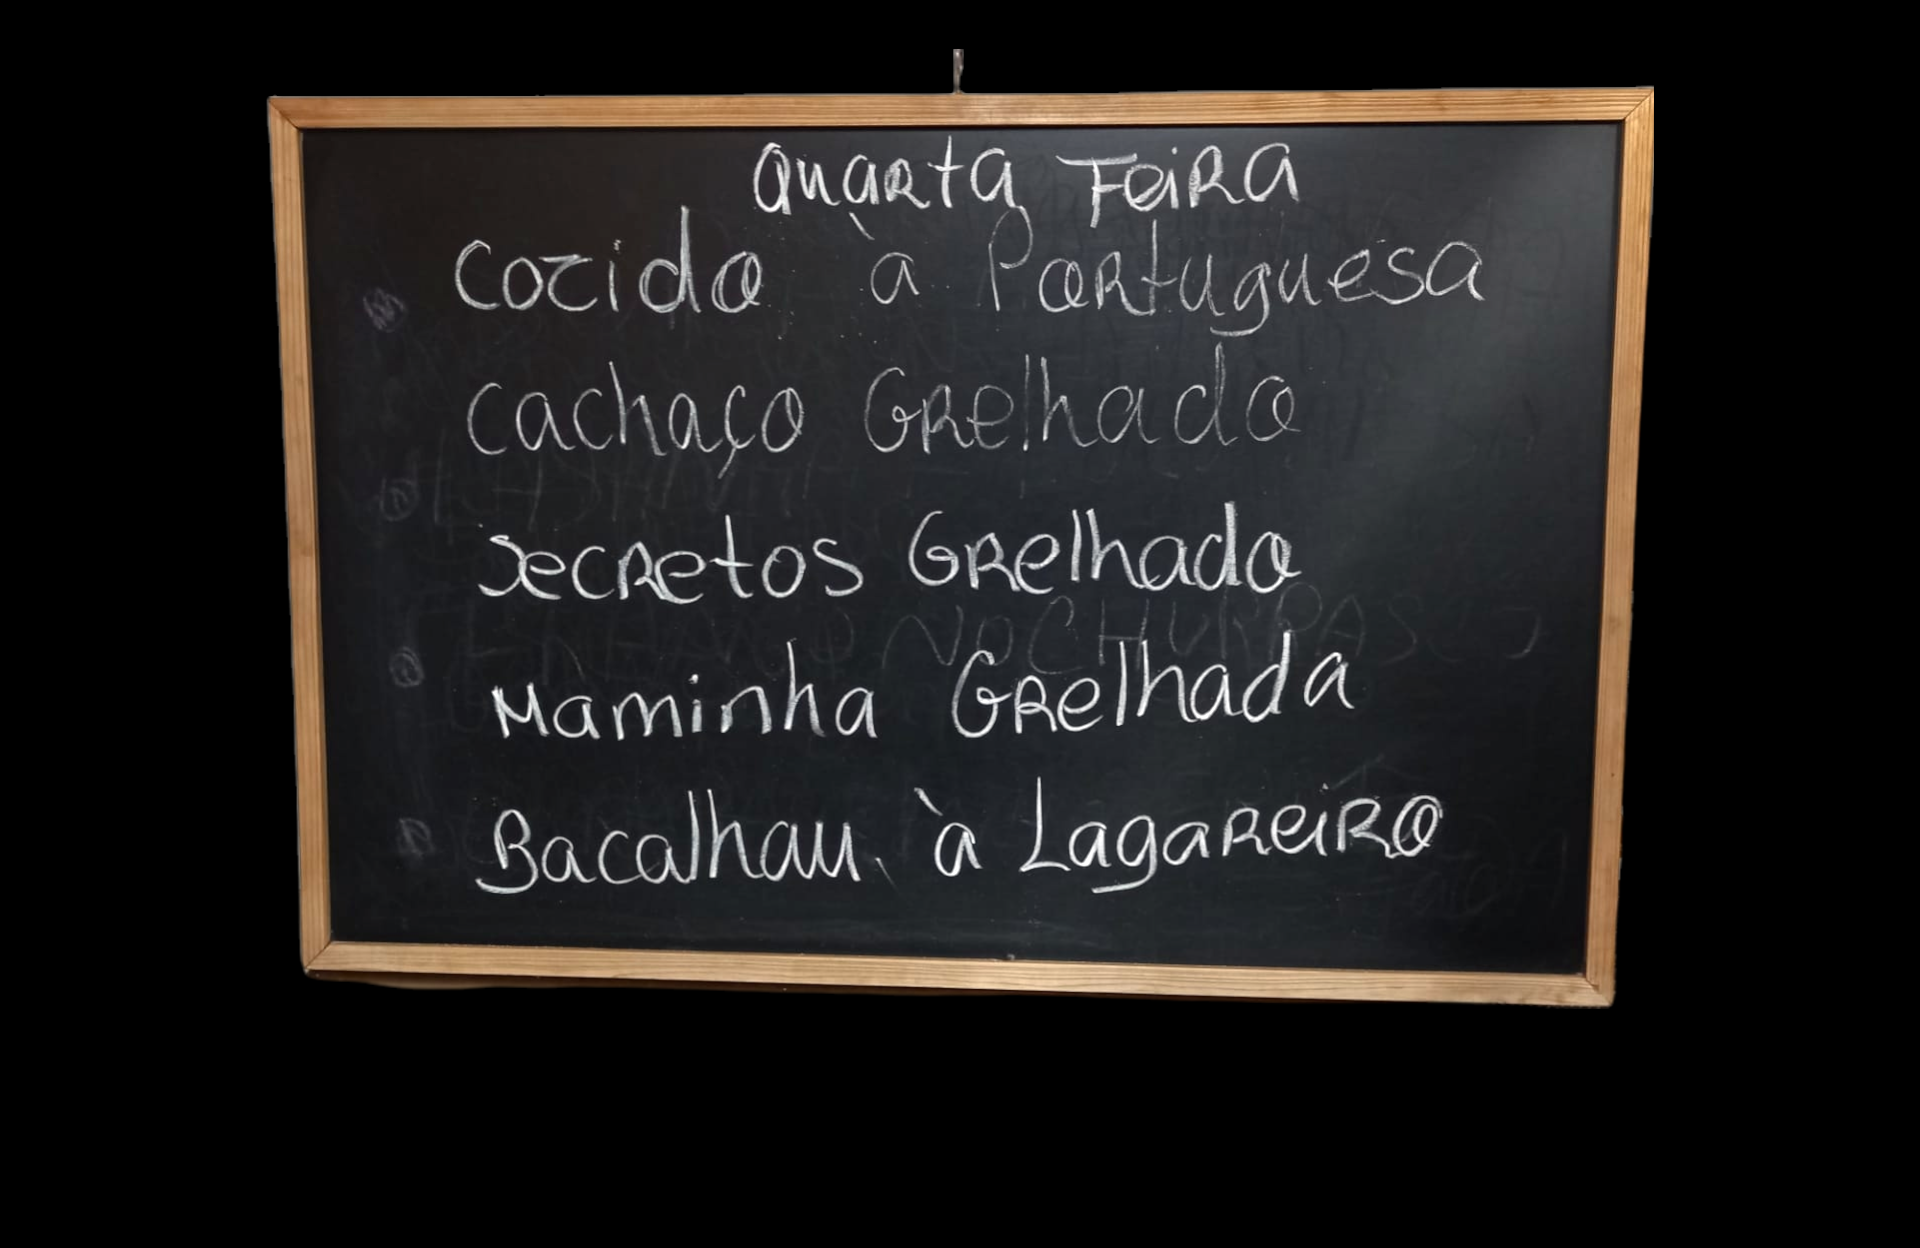 Quarta Feira
Cozido à Portuguesa
Cachaço Grelhado
Secretos Grelhado
Maminha Grelhada
Bacalhau à Lagareiro